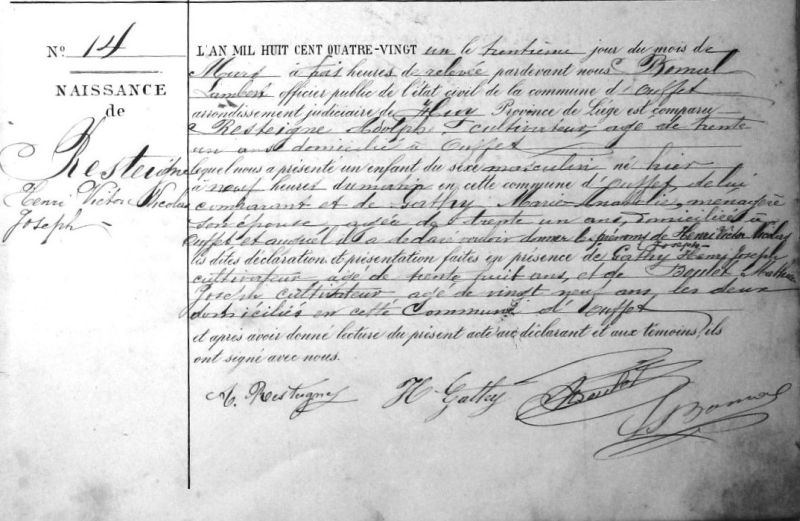 N° 14
NAISSANCE
de
Resteigne
Henri Victor Nicolas
Joseph
L'AN MIL HUIT CENT QUATRE-VINGT un le trentième jour du mois de
Mars à trois heures de relevée pardevant nous Bomal
Lambert officier public de l'état civil de la commune d'Ouffet
arrondissement judiciaire de Huy Province de Liége est comparu
Resteigne Adolphe cultivateur agé de trente
un ans domicilié à Ouffet
lequel nous a présenté un enfant du sèxe masculin né hier
à neuf heures du matin en cette commune d'Ouffet de lui
comparant et de Gathy Marie menagère
son épouse agée de trente un ans, domiciliés à
Ouffet et auquel il a déclaré vouloir donner les prénoms de Henri Victor Nicolas
Joseph
les dites déclaration et présentation faites en présence de Gathy Henri Joseph
cultivateur agé de trente huit ans, et de
Joseph cultivateur agé de vingt neuf ans les deux
domiciliés en cette Commune d'Ouffet
et après avoir donné lecture du présent acte au déclarant et aux témoins, ils
ont signé avec nous.
A. Resteigne H. Gathy
L. Bomal